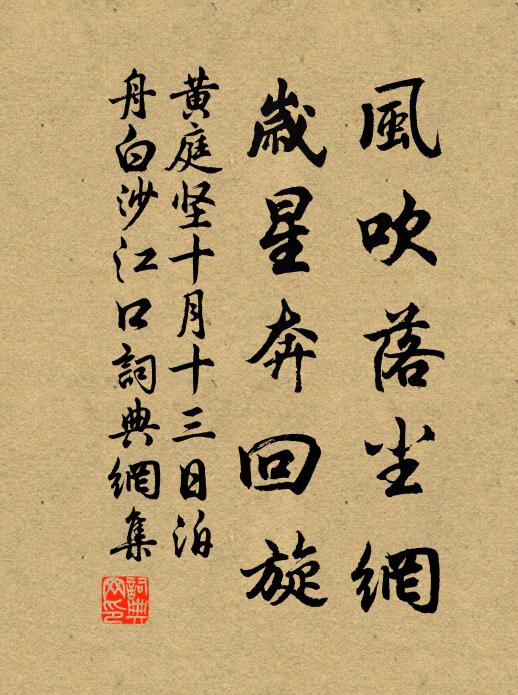 風吹落尘網
歲星奔回旋
黃庭坚十月十三日泊
舟白沙江口詞典網集
詞典網印